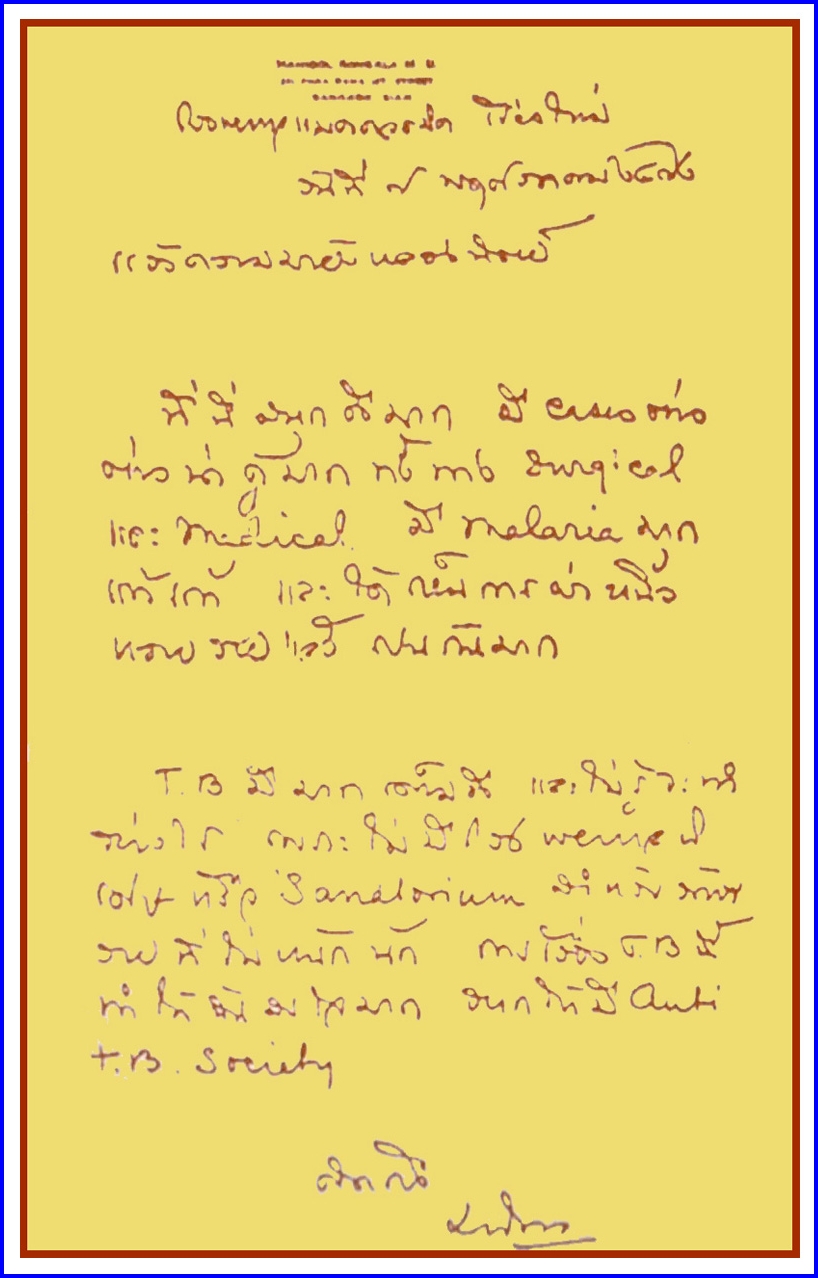 MAHIDOL SONGKLA M D
BANGKOK SIAM
แมคคอมิค เชียงใหม่
วันที่ ๗ พฤษภาคม ๒๔๗๒
แจ้งความมายังหลวงนิตย์
ที่นี่สนุกดีมาก มี cases ต่าง
ต่างน่าดูมาก ทั้งทาง surgical
และ medical. มี malaria มาก
แท้แท้ และได้เห็นการผ่าหนิ้ว
หลายรายแล้ว ฝนมาก
T.B มีมากเต็มที และไม่รู้จะทำ
อย่างไร เพราะไม่มีโรงพยาบาล
เศษ หรือ Sanatorium สำหรับ
รายที่ไม่หนักนัก การเรื่อง T.B นี้
ทำให้ฉันสนใจมาก อยากให้มี Anti
T.B. Society
คิดถึง